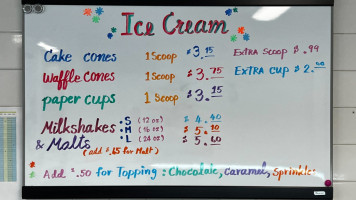 Ice Cream
Cake cones 1 Scoop $3.15 Extra Scoop $.99
Waffle cones 1 Scoop $3.75 Extra cup $2.00
paper cups 1 Scoop $3.15
Milkshakes :S (12 oz) $4.40
& Malts :M (16 oz) $5.10
:L (24 oz) $5.60
(add $.65 for Malt)
Add $.50 for Topping : Chocolate, Caramel, Sprinkle